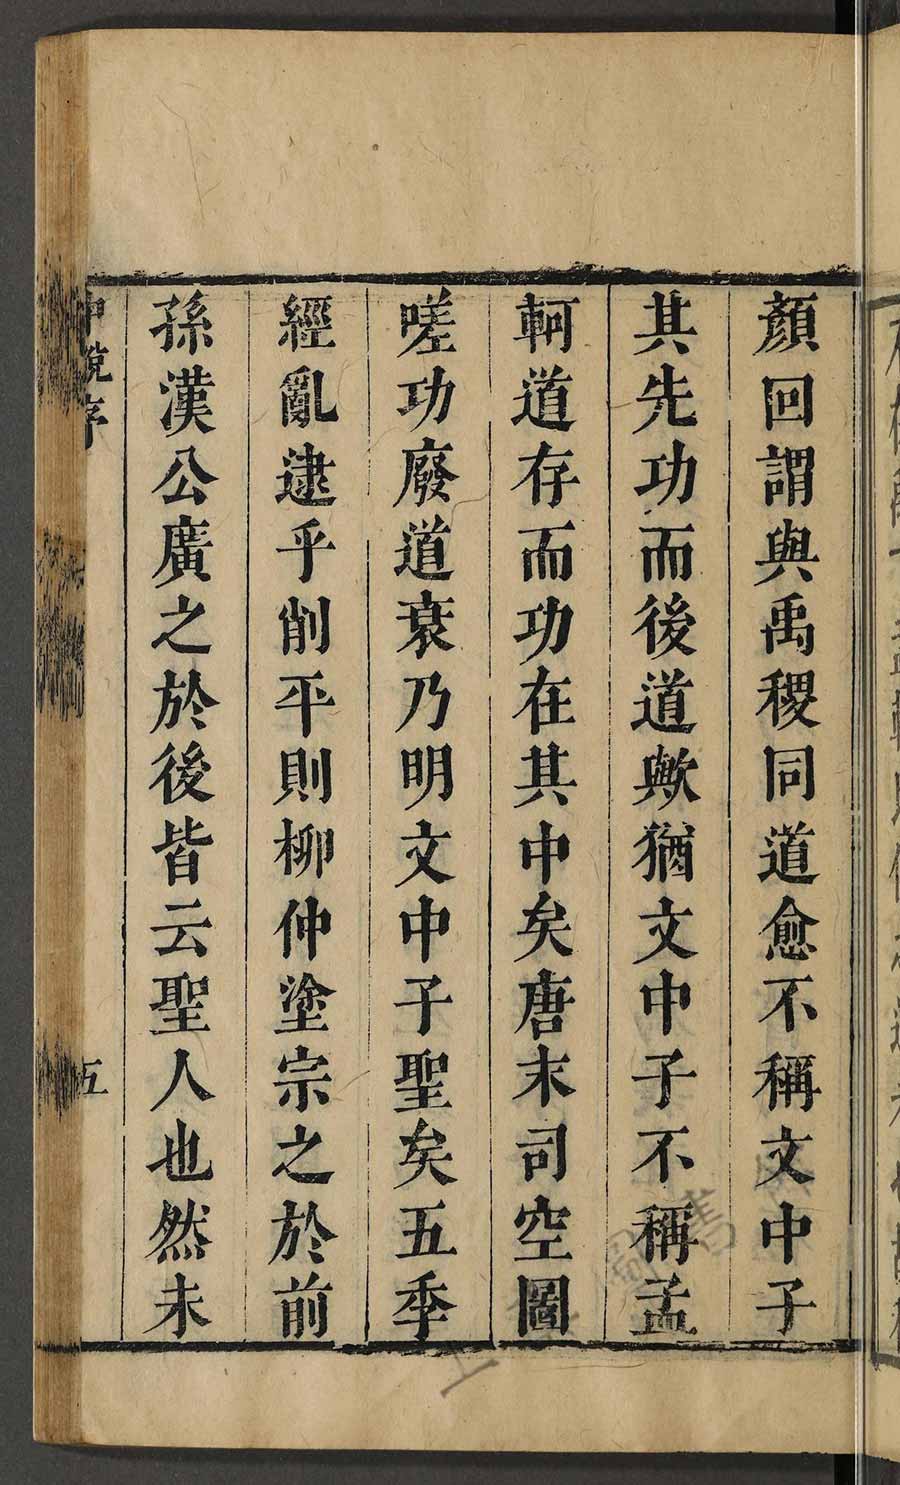 顏回謂與禹稷同道愈不稱文中子
其先功而後道歟猶文中子不稱孟
軻道存而功在其中矣唐末司空圖
嗟功廢道衰乃明文中子聖矣五季
經亂逮乎削平則柳仲塗宗之於前
孫漢公廣之於後皆云聖人也然未
中說序
五